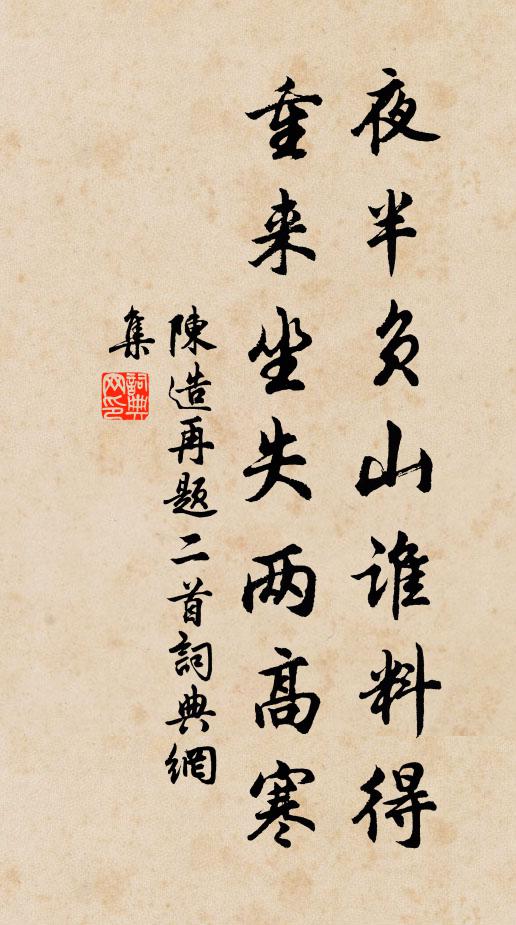 夜半负山谁料得
重来坐失两高寒
陳造再题二首詞典網
集
詞典网印